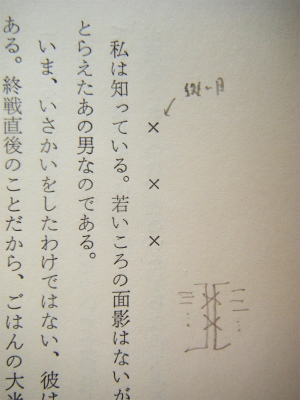 × × ×
私は知っている。若いころの面影はないが
とらえたあの男なのである。
いま、いさかいをしたわけではない、彼は
ある。終戦直後のことだから、ごはんの大